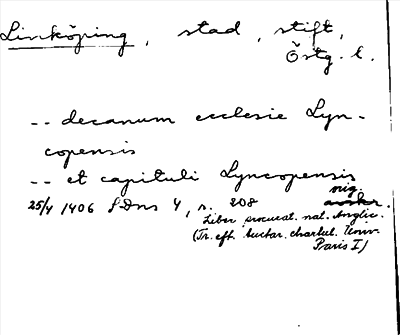 Linköping, stad, stift,
Östg. l.
-- decanum ecclesie Lyn-
copensis
-- et capituli Lyncopensis
nig.
25/4 1406 SDns 4, n. 208
Liber procurat. nat. Anglic.
(Tr. eft. Auctar. chartul. Univ.
Paris I)